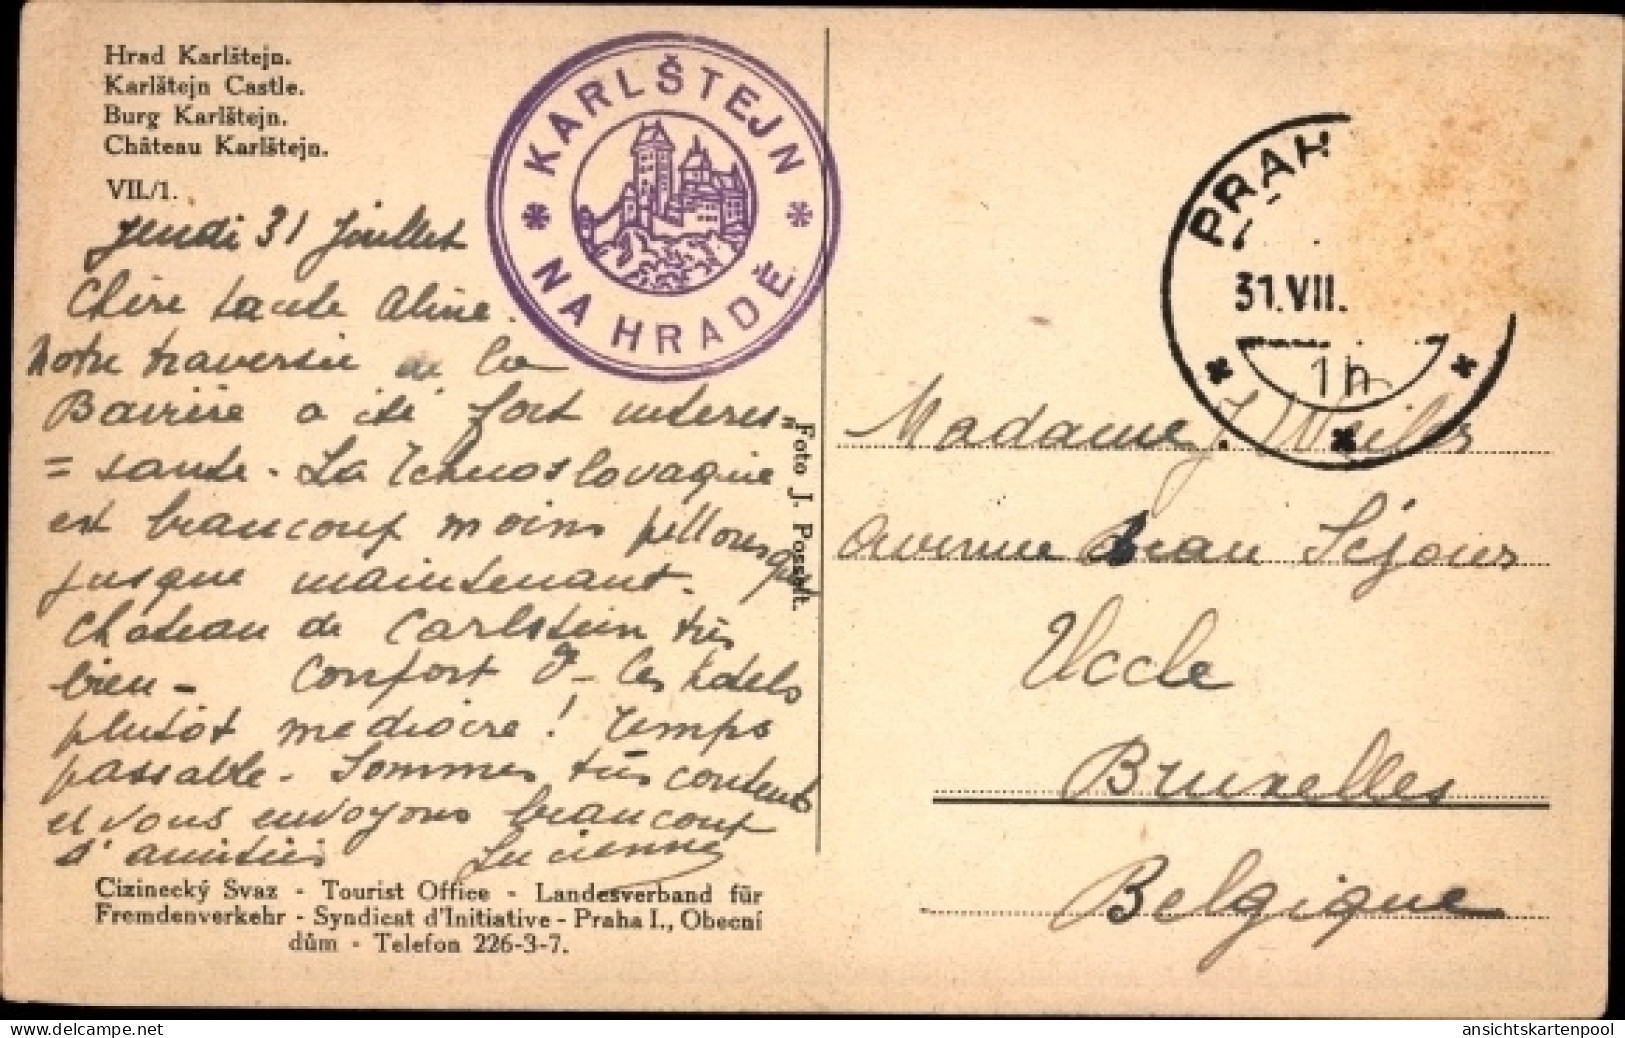 Hrad Karlštejn.
Karlštejn Castle.
Burg Karlštejn.
Château Karlštejn.
VII./1.
KARLŠTEJN
* NA HRADĚ *
Jeudi 31 Juillet
Chère tante Aline.
Notre traversée de la
Bavière a été fort interes=
=sante. La Tchecoslovaquie
est beaucoup moins pittoresque
jusque maintenant.
Château de Carlstein très
bien - Confort & - les hotels
plutôt mediocre! Temps
passable. Sommes très contents
et vous envoyons beaucoup
d'amitiés Lucienne
Cizinecký Svaz - Tourist Office - Landesverband für
Fremdenverkehr - Syndicat d'Initiative - Praha I., Obecní
dům - Telefon 226-3-7.
Foto J. Posselt.
PRAH
31.VII.
1h
Madame J.
avenue Beau Séjour
Uccle
Bruxelles
Belgique
www.delcampe.net
ansichtskartenpool